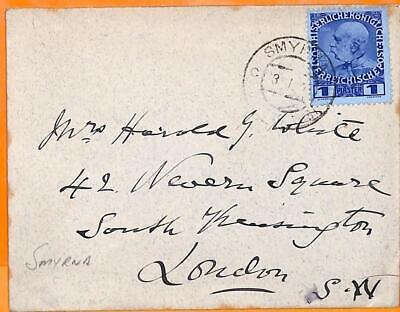 SMYRN
KAISERLICHE KÖNIGLICHE
ÖSTERREICHISCHE POST
1 PIASTER 1
Mrs Harold G. White
42 Nevern Square
South Kensington
London
S.W
SMYRNA